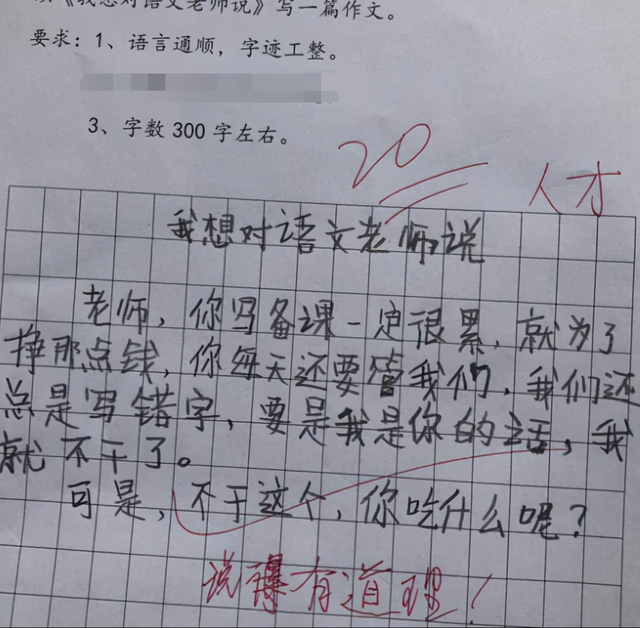 《我想对语文老师说》写一篇作文。
要求：1、语言通顺，字迹工整。
3、字数 300 字左右。
20
人才
我想对语文老师说
老师，你写备课一定很累，就为了
挣那点钱，你每天还要管我们，我们还
总是写错字，要是我是你的话，我
就不干了。
可是，不干这个，你吃什么呢？
说得有道理！